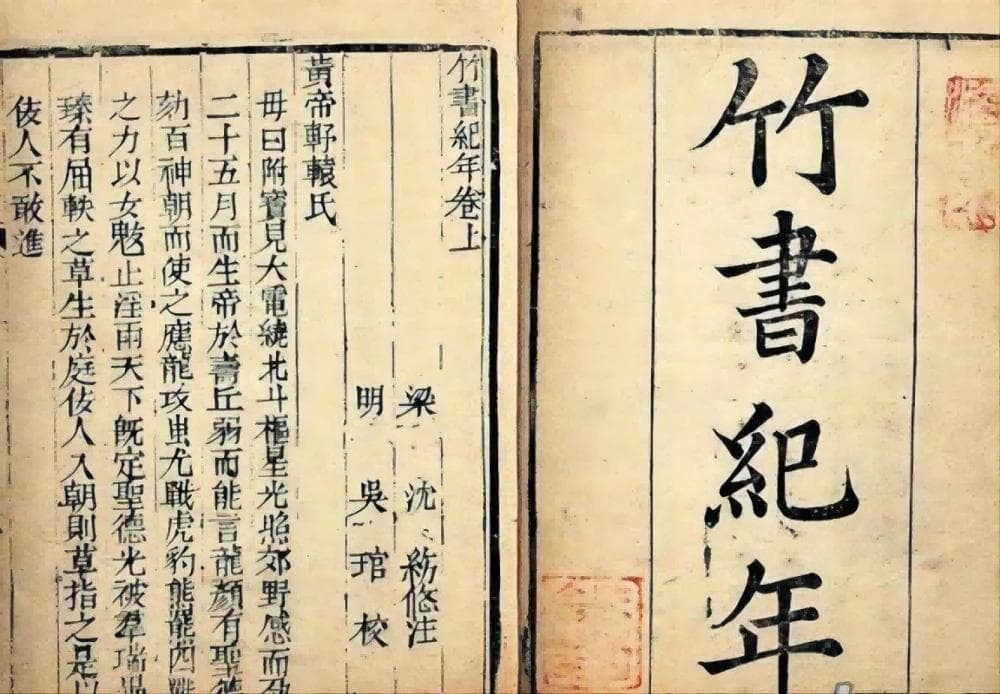 竹書紀年
竹書紀年卷上
梁 沈 紡悠注
明 吳 琯 校
黃帝軒轅氏
母曰附寶見大電繞北斗樞星光照郊野感而孕
二十五月而生帝於壽丘弱而能言龍顏有聖德
劾百神朝而使之應龍攻蚩尤戰虎豹熊羆四
之力以女魃止淫雨天下既定聖德光被羣瑞
臻有屈軼之草生於庭佞人入朝則草指之是以
佞人不敢進